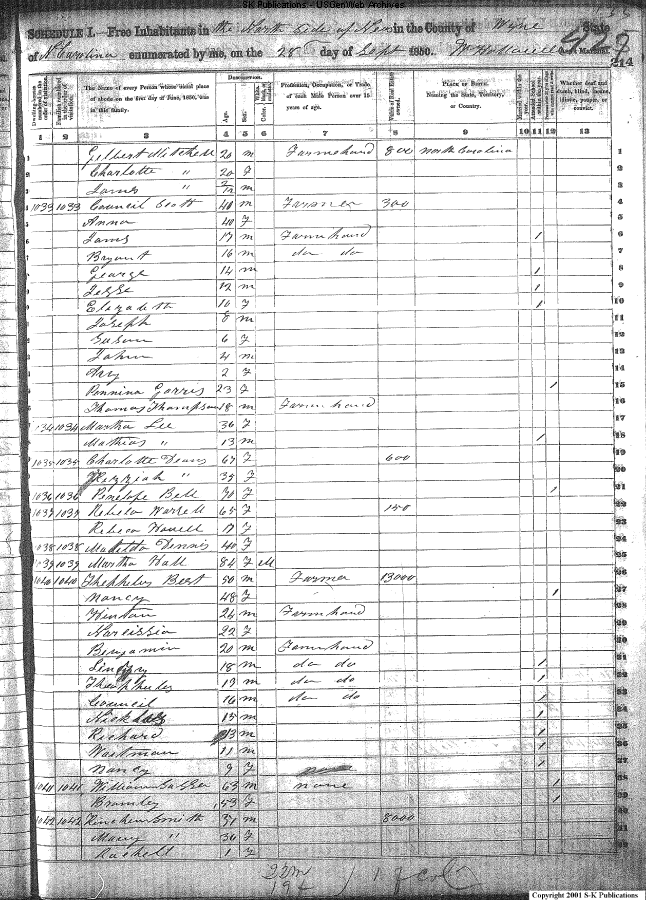 S-K Publications - USGenWeb Archives
SCHEDULE I.—Free Inhabitants in the North Side of Neus in the County of Wine State
of N. Carolina enumerated by me, on the 28 day of Sept 1850. Ass't Marshal.
227
214
Dwelling-houses numbered in the order of visitation.
Families numbered in the order of visitation.
The Name of every Person whose usual place of abode on the first day of June, 1850, was in this family.
DESCRIPTION.
Age.
Sex.
Profession, Occupation, or Trade of each Male Person over 15 years of age.
Value of Real Estate owned.
PLACE OF BIRTH. Naming the State, Territory, or Country.
Whether deaf and dumb, blind, insane, idiotic, pauper, or convict.
1 2 3 4 5 6 7 8 9 10 11 12 13
1 Gilbert Mitchell 20 m Farmehand 800 North Carolina 1
2 Charlotte " 20 F 2
3 James " m 3
4 1033 1033 Council Scott 40 m Farmer 300 4
Anna 40 F 5
James 17 m Farm hand 1 6
Bryant 16 m do do 7
George 14 m 1 8
Jesse 12 m 1 9
Elizabeth 10 F 1 10
Joseph 8 m 11
Susan 6 F 12
John 4 m 13
2 F 14
Pennina Garris 23 F 1 15
Thomas Thompson 18 m Farm hand 16
1034 1034 Martha Lee 36 F 17
Mathias " 13 m 1 18
1035 1035 Charlotte Deans 67 F 600 19
Kezziah " 35 F 20
1036 1036 Penelope Bell 70 F 1 21
1037 1037 Rebeca Worrell 65 F 150 22
Rebeca Howell 17 F 23
1038 1038 Matilda Dennis 40 F 24
1039 1039 Martha Hall 84 F M 25
1040 1040 Thephelus Best 50 m Farmer 13000 26
Nancy 48 F 1 27
Hinton 24 m Farm hand 28
Narcissia 22 F 29
Benjamin 20 m Farm hand 30
18 m do do 1 31
Theophulus 17 m do do 1 32
Council 16 m do do 1 33
15 m 1 34
Richard 13 m 1 35
Woitman 11 m 1 36
Nancy 9 F 1 37
1041 1041 William 63 m none 1 38
53 F 1 39
1042 1042 Smith 31 m 8000 40
Mary " 30 F 41
Rachell 1 F 42
Copyright 2001 S-K Publications